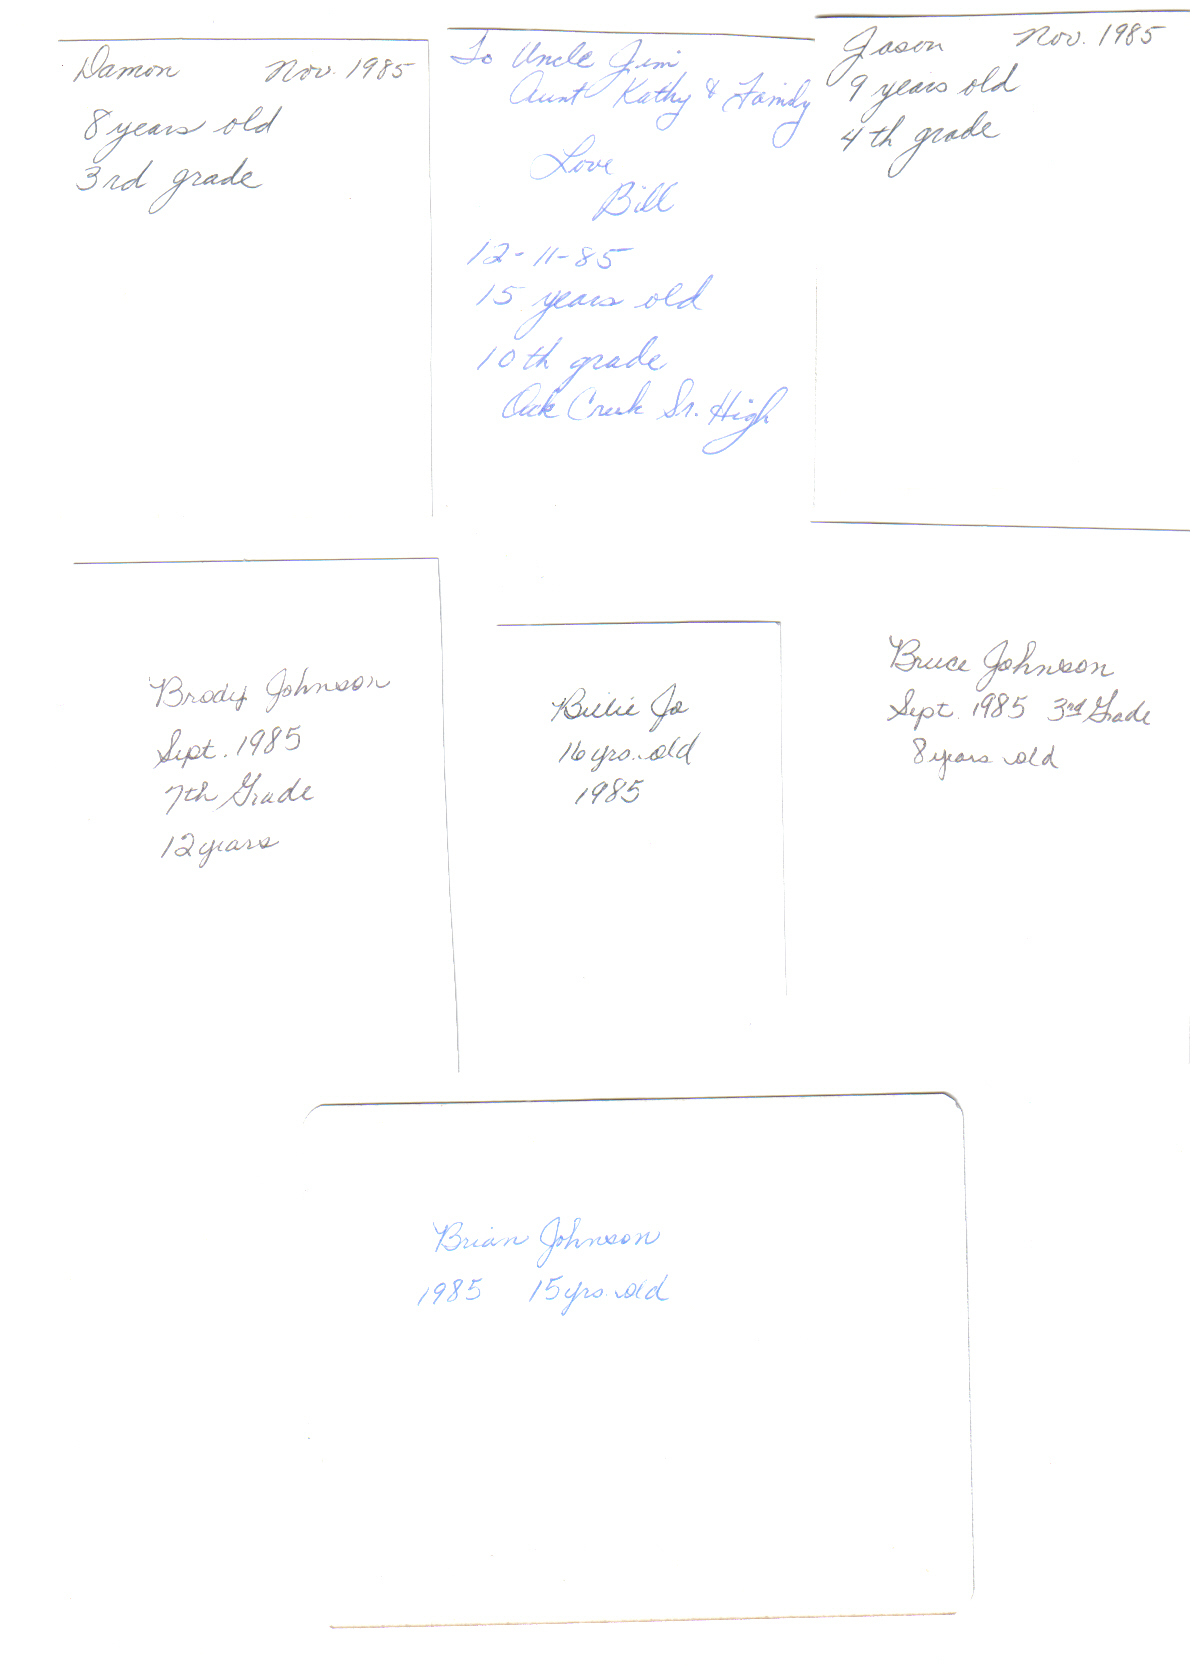 Damon Nov. 1985
8 years old
3rd grade
To Uncle Jim
Aunt Kathy & Family
Love
Bill
12-11-85
15 years old
10th grade
Oak Creek Sr. High
Jason Nov. 1985
9 years old
4th grade
Brody Johnson
Sept. 1985
7th Grade
12 years
Billie Jo
16 yrs. old
1985
Bruce Johnson
Sept. 1985 3rd Grade
8 years old
Brian Johnson
1985 15 yrs. old